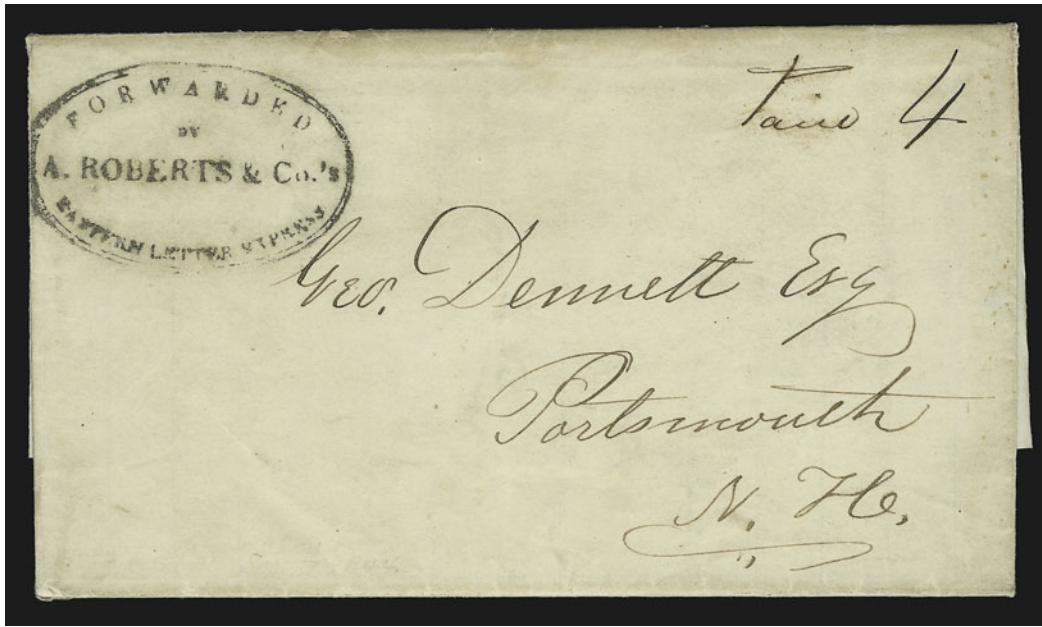 FORWARDED
BY
A. ROBERTS & Co.'s
EASTERN LETTER EXPRESS
Paid 4
Geo. Dennett Esq
Portsmouth
N. H.